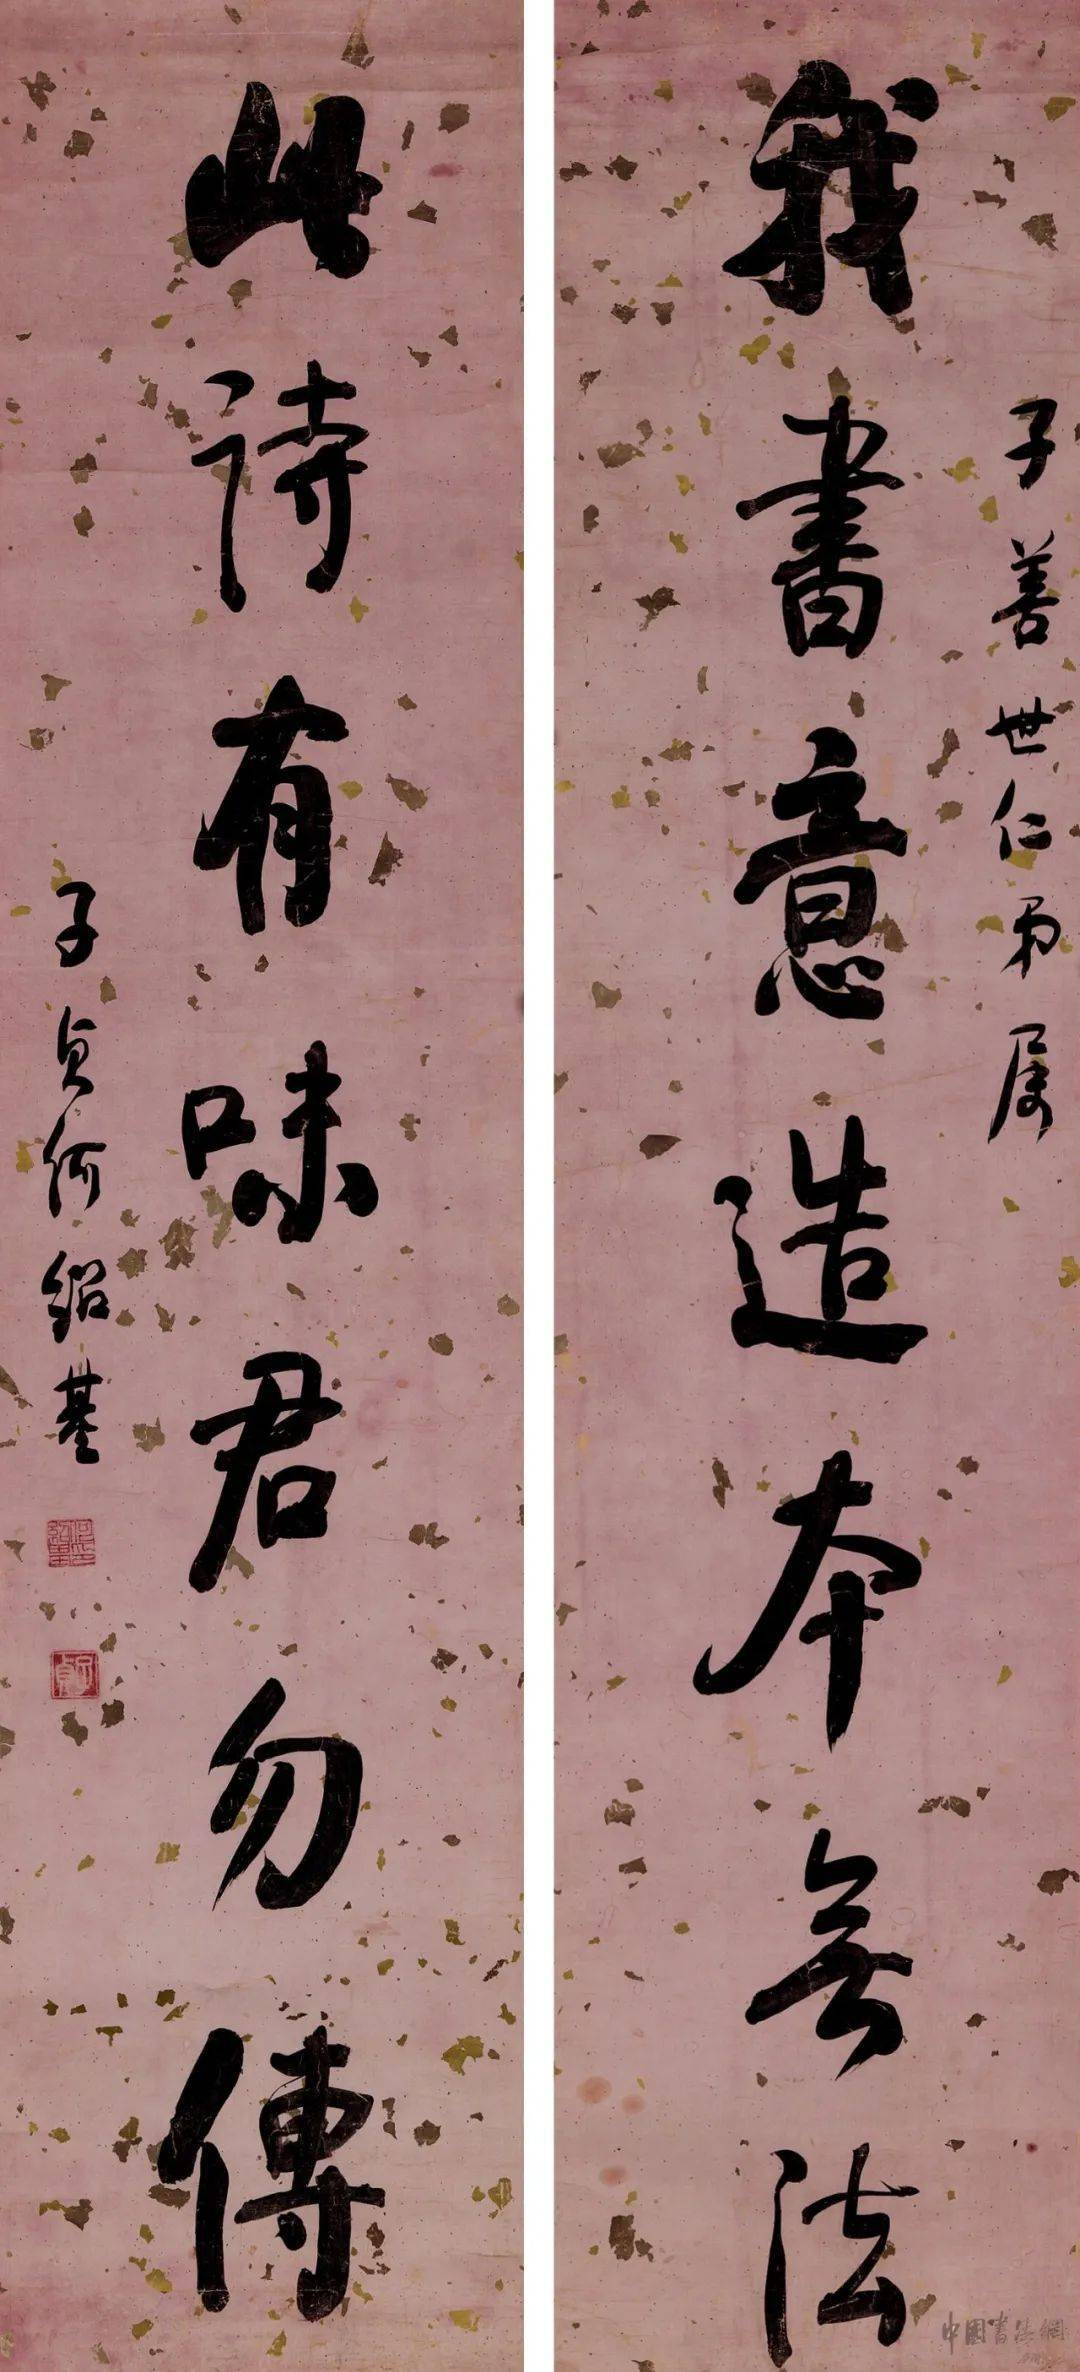 子善世仁弟属
我書意造本無法
此詩有味君勿傳
子貞何紹基
中國書法網